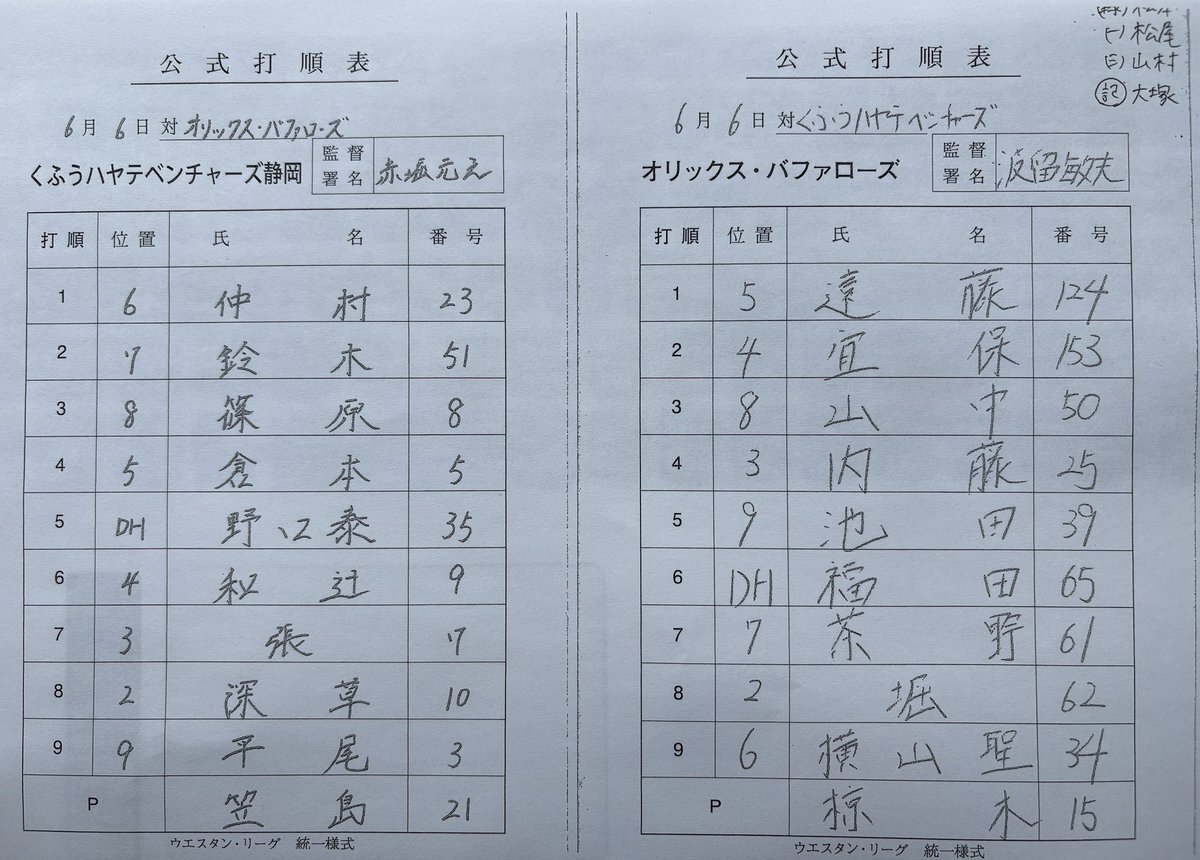 公式打順表
6月6日対オリックス・バファローズ
くふうハヤテベンチャーズ静岡 監督署名 赤堀元之
打順 位置 氏名 番号
1 6 仲村 23
2 7 鈴木 51
3 8 篠原 8
4 5 倉本 5
5 DH 野口泰 35
6 4 秋辻 9
7 3 張 7
8 2 深草 10
9 9 平尾 3
P 笠島 21
ウエスタン・リーグ 統一様式
松尾
山村
記 大塚
公式打順表
6月6日対くふうハヤテベンチャーズ
オリックス・バファローズ 監督署名 波留敏夫
打順 位置 氏名 番号
1 5 遠藤 124
2 4 宜保 153
3 8 山中 50
4 3 内藤 25
5 9 池田 39
6 DH 福田 65
7 7 茶野 61
8 2 堀 62
9 6 横山聖 34
P 椋木 15
ウエスタン・リーグ 統一様式